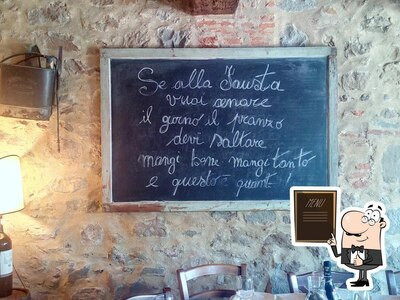 Se alla Fausta
vuoi cenare
il giorno il pranzo
devi saltare
mangi bene mangi tanto
e questo è quanto !
MENU